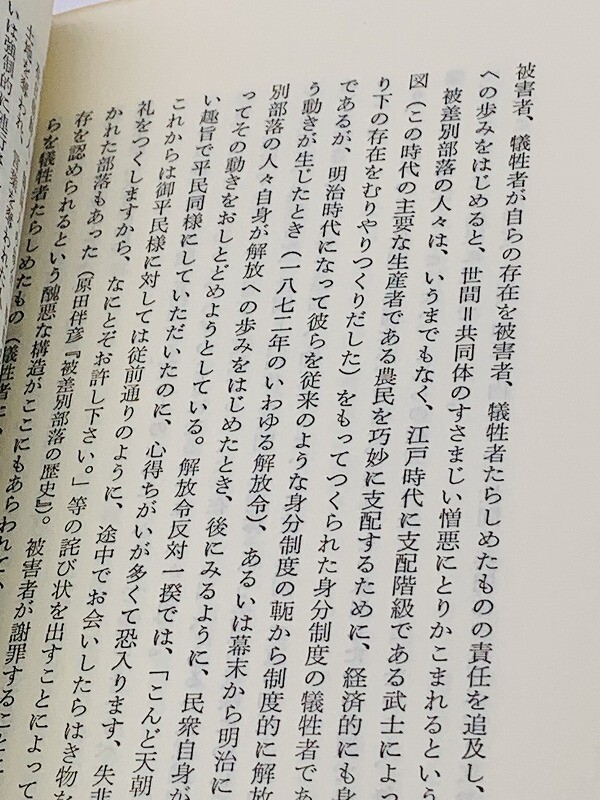 被害者、犠牲者が自らの存在を被害者、犠牲者たらしめたものの責任を追及し、
への歩みをはじめると、世間＝共同体のすさまじい憎悪にとりかこまれるという
被差別部落の人々は、いうまでもなく、江戸時代に支配階級である武士によっ
図（この時代の主要な生産者である農民を巧妙に支配するために、経済的にも身
り下の存在をむりやりつくりだした）をもってつくられた身分制度の犠牲者であ
であるが、明治時代になって彼らを従来のような身分制度の軛から制度的に解放
う動きが生じたとき（一八七二年のいわゆる解放令）、あるいは幕末から明治に
別部落の人々自身が解放への歩みをはじめたとき、後にみるように、民衆自身が
ってその動きをおしとどめようとしている。解放令反対一揆では、「こんど天朝
い趣旨で平民同様にしていただいたのに、心得ちがいが多くて恐入ります、失非
これからは御平民様に対しては従前通りのように、途中でお会いしたらはき物を
礼をつくしますから、なにとぞお許し下さい。」等の詫び状を出すことによって
かれた部落もあった（原田伴彦『被差別部落の歴史』）。被害者が謝罪することに
存を認められるという醜悪な構造がここにもあらわれて、
らを犠牲者たらしめたもの（犠牲者に、
いは強制的に